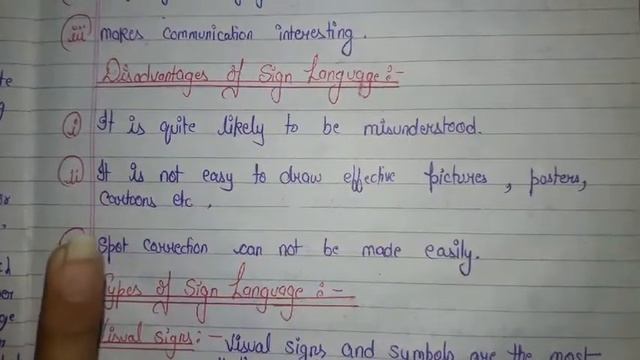 (iii) makes communication interesting.
Disadvantages of Sign Language :-
(i) It is quite likely to be misunderstood.
(ii) It is not easy to draw effective pictures, posters,
Cartoons etc,
Spot correction can not be made easily.
Types of Sign Language :-
Visual signs :- Visual signs and symbols are the most